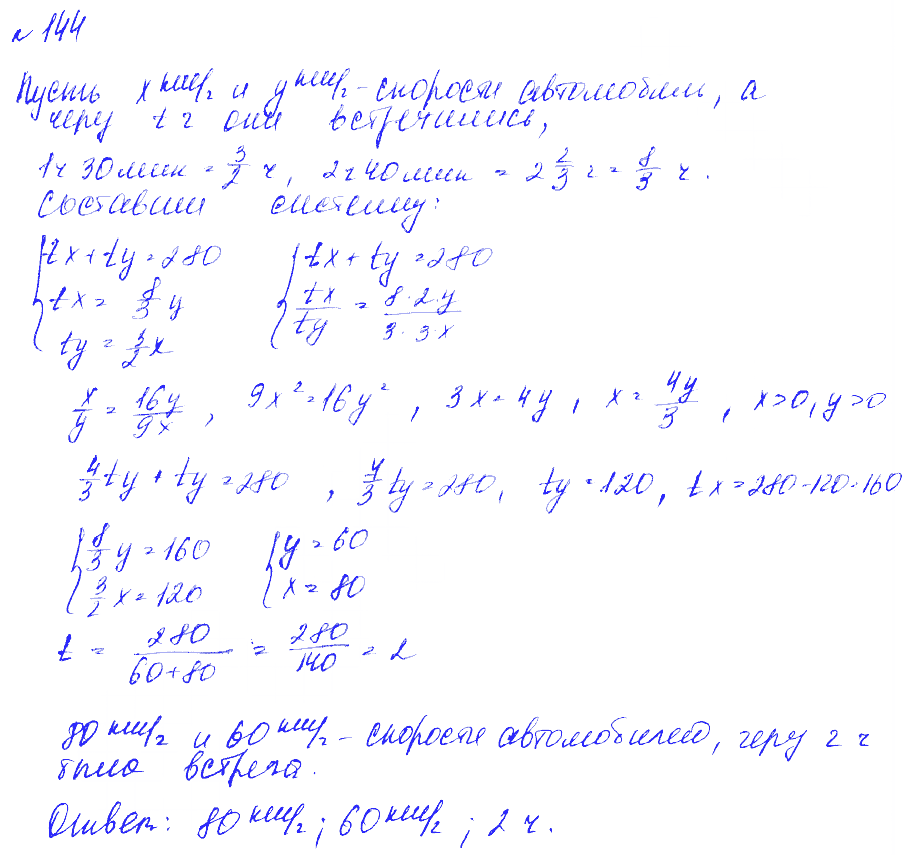 № 144
Пусть x км/ч и y км/ч - скорости автомобиль, а
через t ч они встретились,
1ч 30 мин = 3/2 ч, 2 ч 40 мин = 2 2/3 ч = 8/3 ч.
Составим систему:
{tx + ty = 280 {tx + ty = 280
tx = 8/3 y tx/ty = 8·2·y/3·3·x
ty = 3/2 x
x/y = 16y/9x, 9x² = 16y², 3x = 4y, x = 4y/3, x>0, y>0
4/3 ty + ty = 280, 7/3 ty = 280, ty = 120, tx = 280-120=160
{8/3 y = 160 {y = 60
3/2 x = 120 x = 80
t = 280/60+80 = 280/140 = 2
80 км/ч и 60 км/ч - скорости автомобилей, через 2 ч
была встреча.
Ответ: 80 км/ч; 60 км/ч; 2 ч.